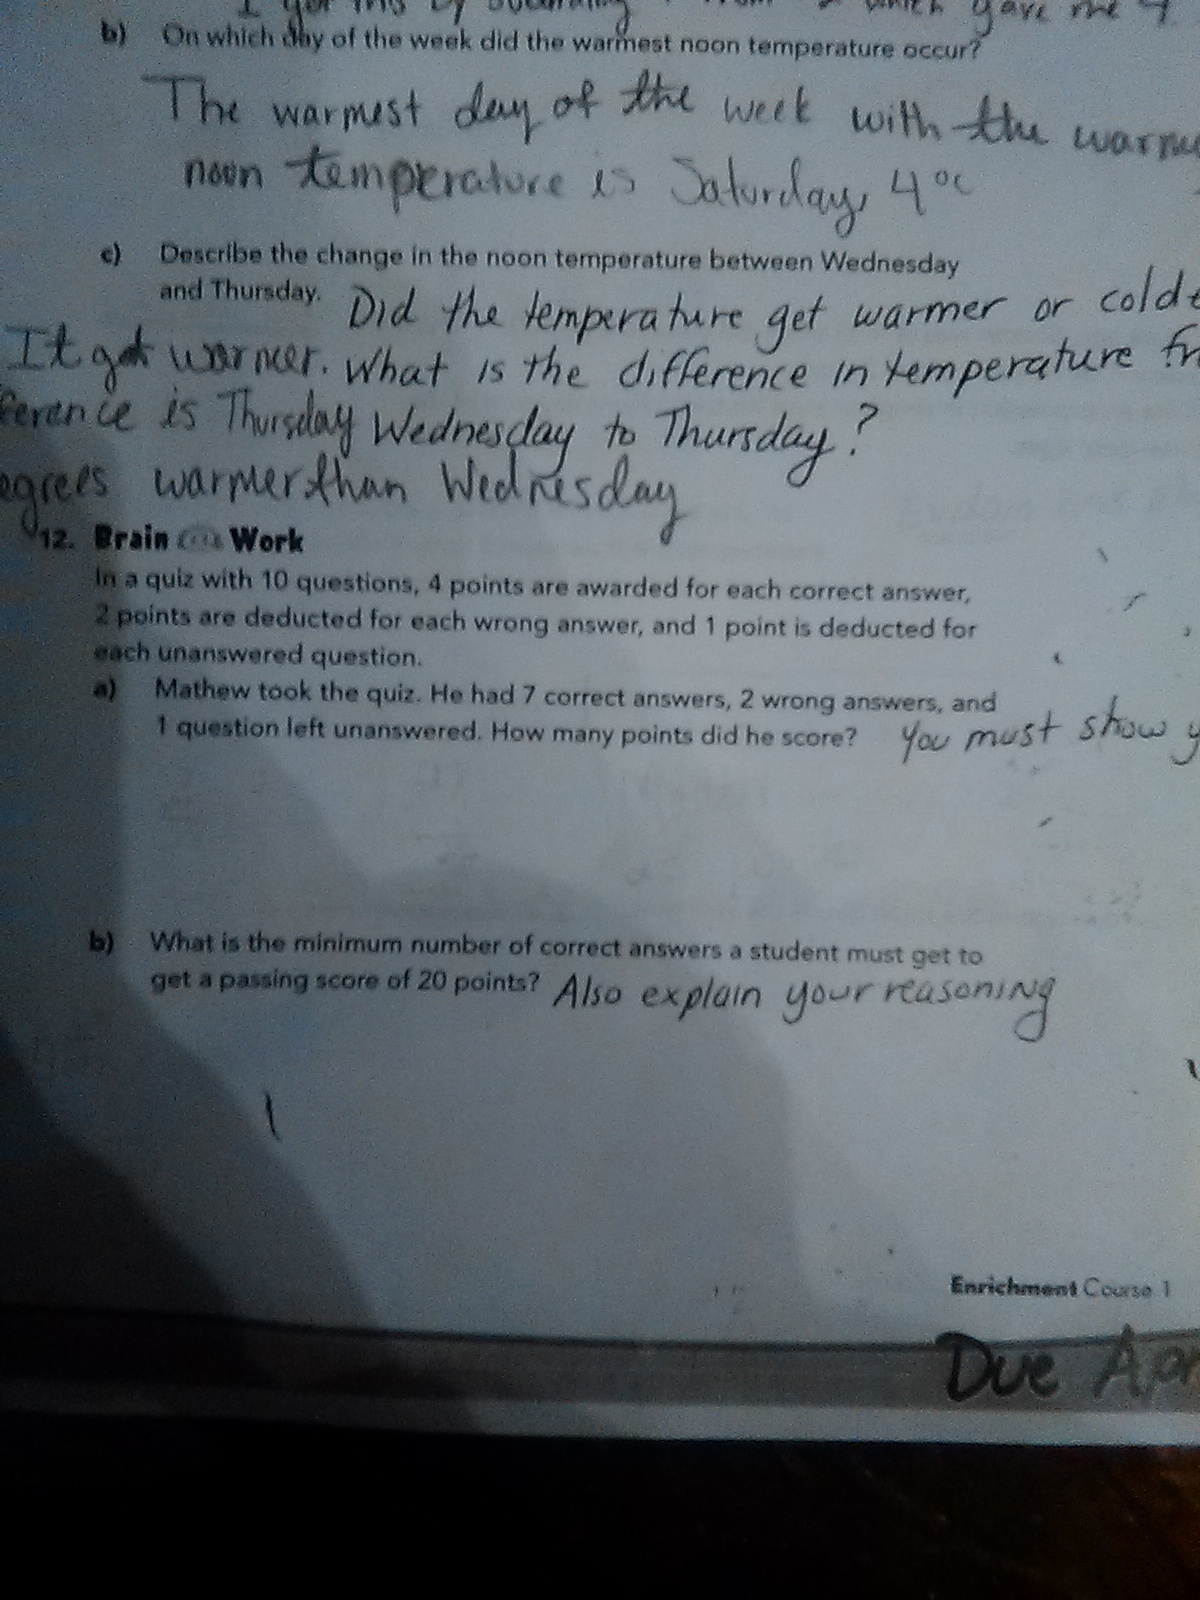 I got this by from which gave me 4
b) On which day of the week did the warmest noon temperature occur?
The warmest day of the week with the
noon temperature is Saturday, 4°c
c) Describe the change in the noon temperature between Wednesday
and Thursday. Did the temperature get warmer or
It got warmer. What is the difference in temperature
is Thursday Wednesday to Thursday?
warmer than Wednesday
12. Brain Work
In a quiz with 10 questions, 4 points are awarded for each correct answer,
2 points are deducted for each wrong answer, and 1 point is deducted for
each unanswered question.
a) Mathew took the quiz. He had 7 correct answers, 2 wrong answers, and
1 question left unanswered. How many points did he score? You must show
b) What is the minimum number of correct answers a student must get to
get a passing score of 20 points? Also explain your reasoning
Enrichment Course 1
Due